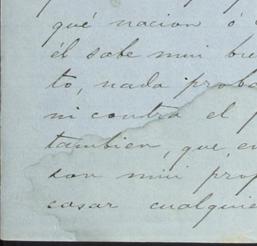 qué nacion ó
él sabe mui bie
to, nada proba
ni contra el p
tambien, que, en
son mui prop
casar cualquie